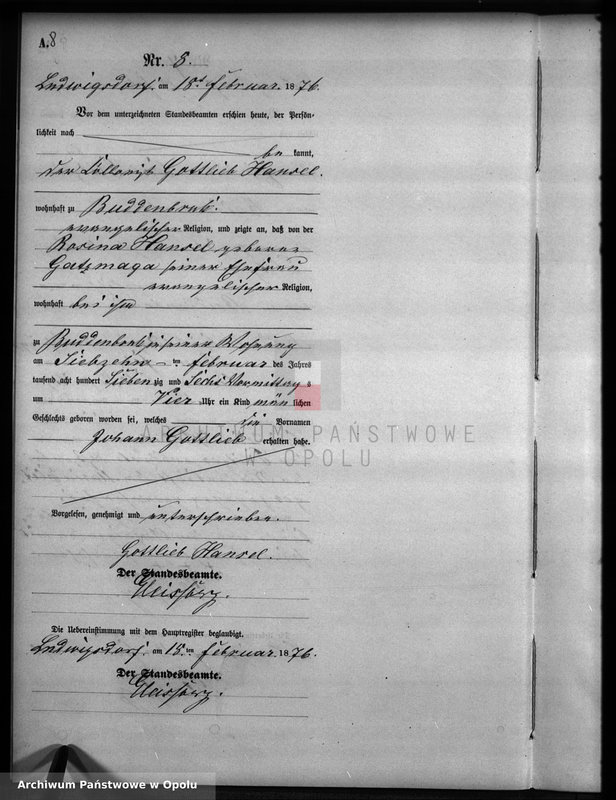 A. 8
Nr. 5.
Ludwigsdorf. am 18ten Februar. 1876.
Vor dem unterzeichneten Standesbeamten erschien heute, der Persön-
lichkeit nach
be kannt,
der Gottlieb Hansel.
wohnhaft zu Buddenbrok.
evangelischer Religion, und zeigte an, daß von der
Rosina Hansel geborene
Gatzmaga seiner Ehefrau
evangelischer Religion,
wohnhaft bei ihm
zu Buddenbrok in seiner Wohnung
am Siebzehn ten Februar des Jahres
tausend acht hundert Sieben zig und Sechs Vormittag s
um Vier Uhr ein Kind män lichen
Geschlechts geboren worden sei, welches die Vornamen
Johann Gottlieb erhalten habe.
ARCHIWUM PAŃSTWOWE
W OPOLU
Vorgelesen, genehmigt und unterschrieben.
Gottlieb Hansel.
Der Standesbeamte.
Die Uebereinstimmung mit dem Hauptregister beglaubigt.
Ludwigsdorf. am 18.ten Februar. 1876.
Der Standesbeamte.
Archiwum Państwowe w Opolu